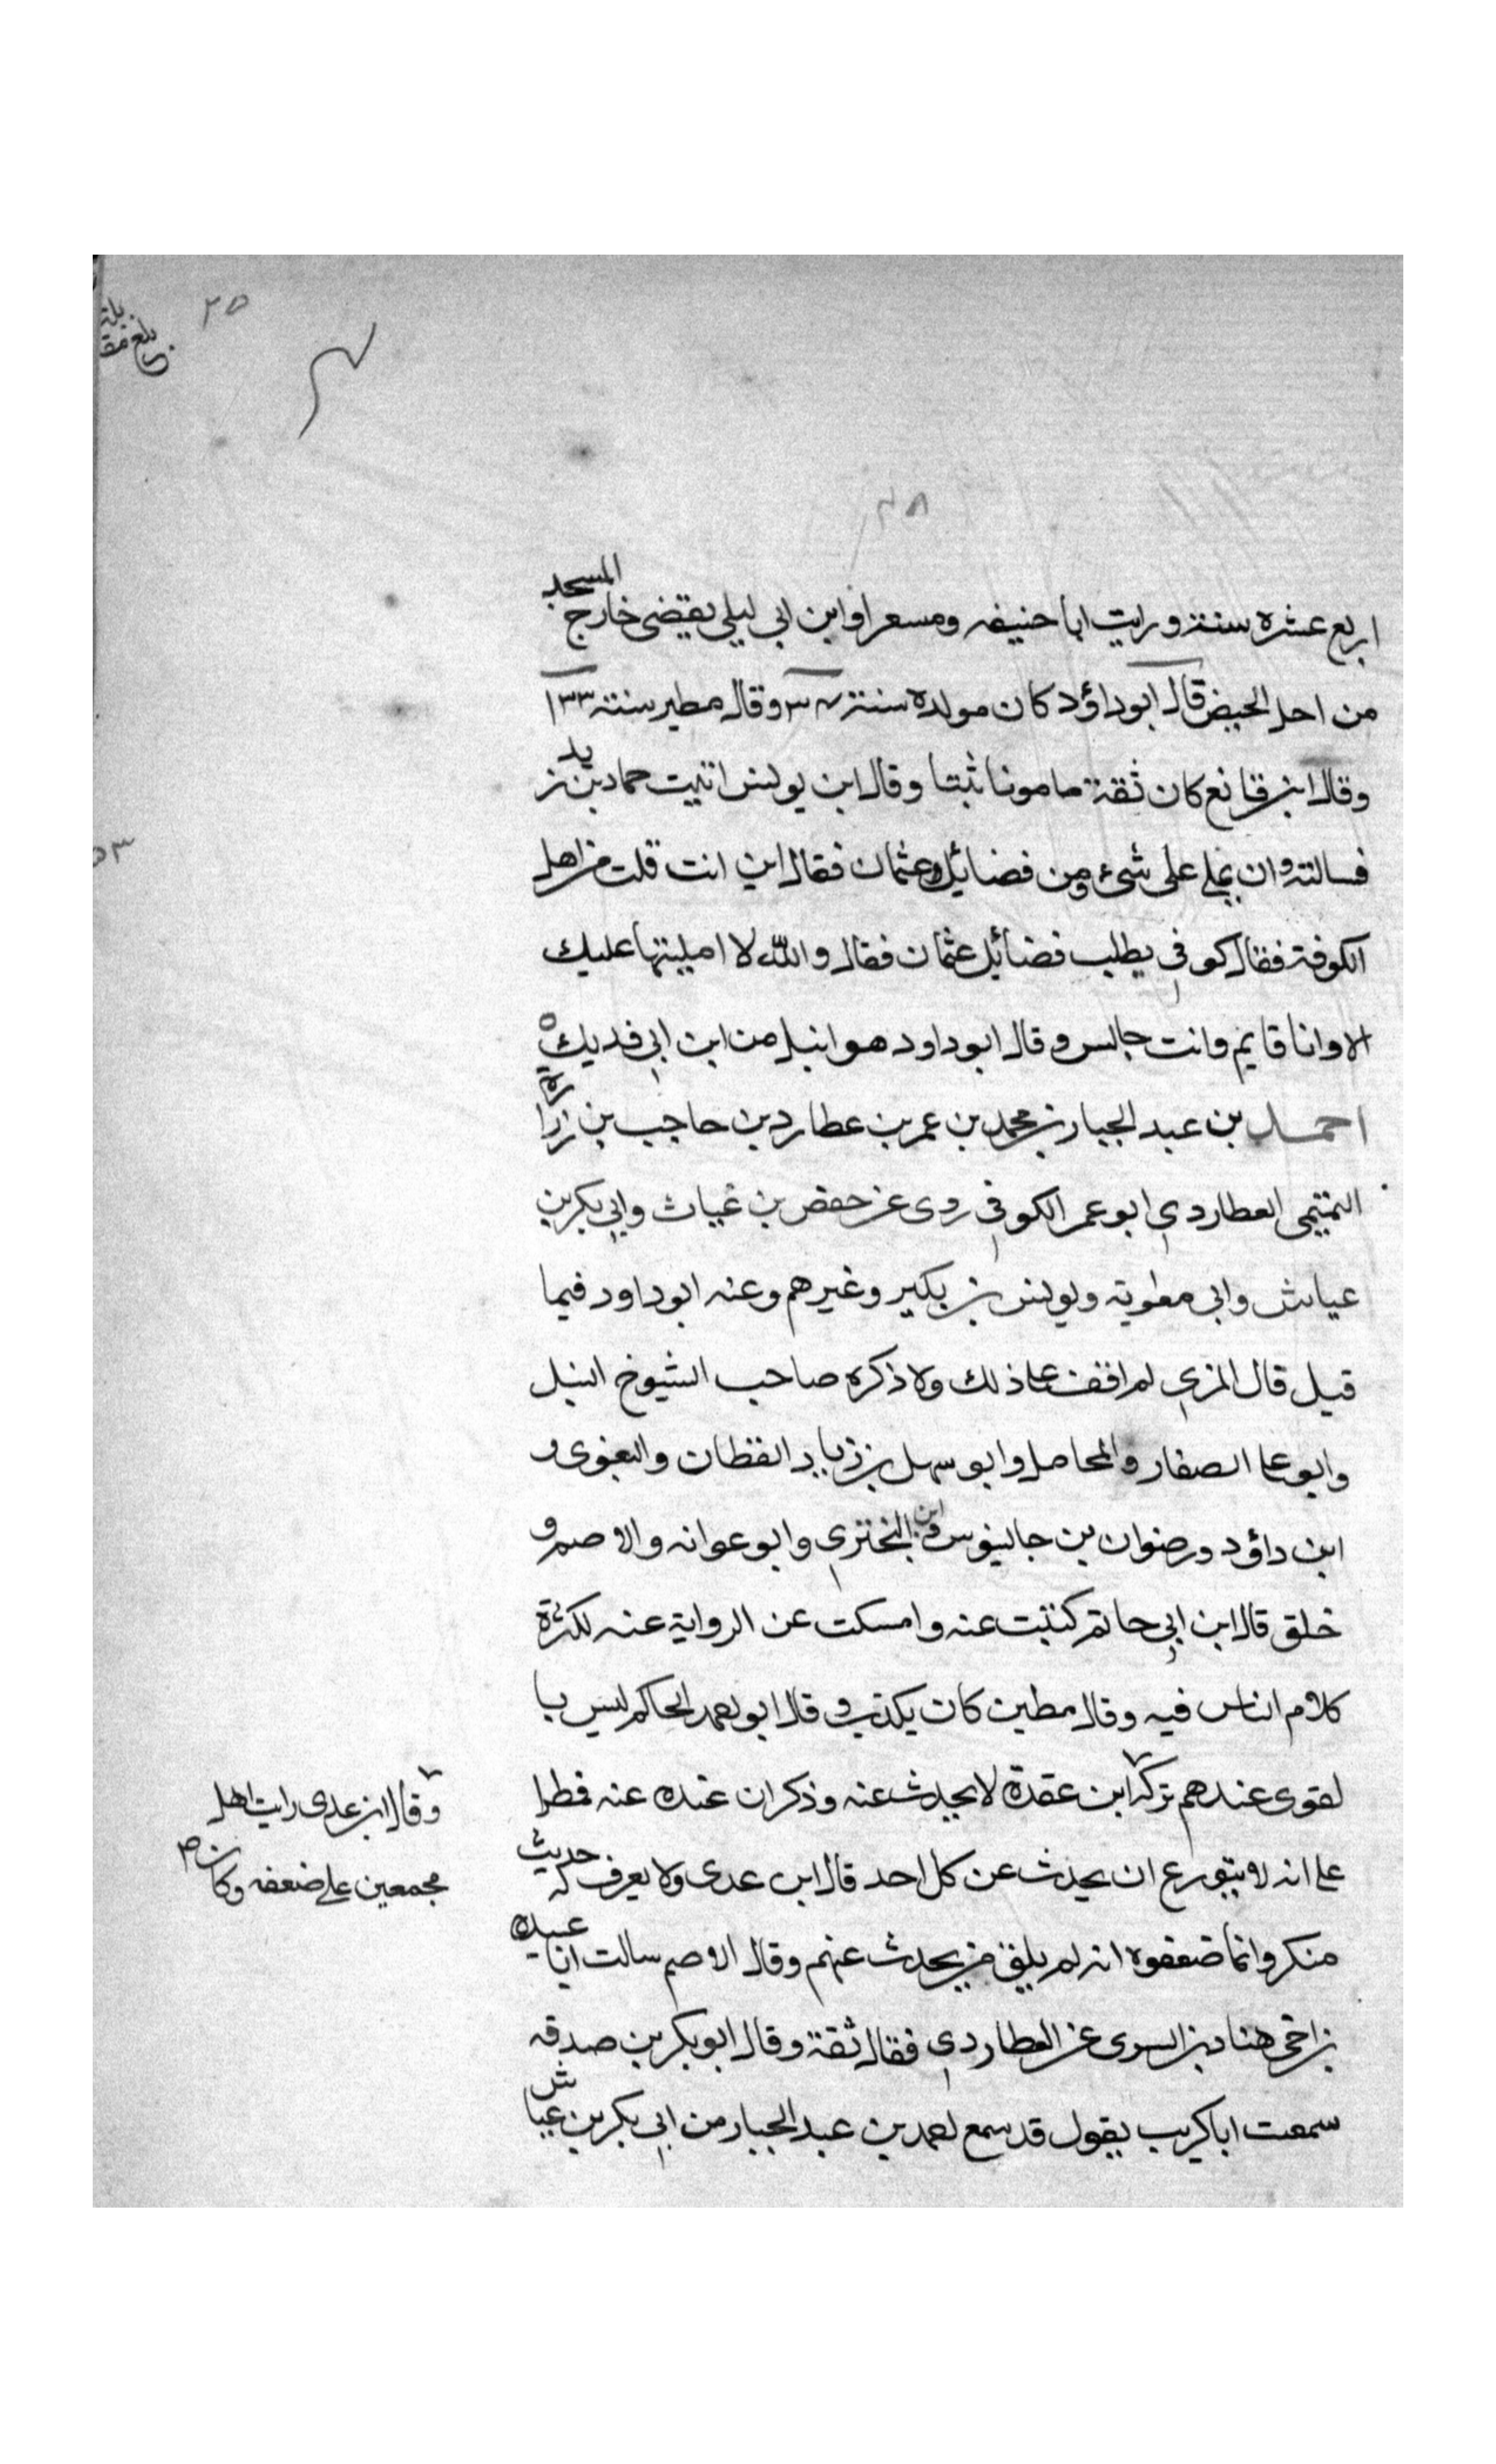 ٢٥
٢٨
اربع عشره سنة ورايت ابا حنيفه ومسعرا وابن ابي ليلى يقضى خارج المسجد
من اجل الحيض قال ابو داؤد كان مولده سنة ٣٤ وقال مطير سنة ١٣٣
وقال ابن قانع كان ثقة مامونا ثبتا وقال ابن يونس اتيت حماد بن زيد
فسالته ان يملي على شىء من فضائل عثمان فقال اين انت قلت من اهل
الكوفة فقال كوفي يطلب فضائل عثمان فقال والله لا امليتها عليك
الا وانا قايم وانت جالس وقال ابو داود هو انبل من ابن ابي فديك ه
احمد بن عبد الجبار بن محمد بن عمر بن عطارد بن حاجب بن زرارة
التميمى العطاردي ابو عمر الكوفي روى عن حفص بن غياث وابي بكر بن
عياش وابي معوية ويونس بن بكير وغيرهم وعنه ابو داود فيما
قيل قال المزي لم اقف على ذلك ولا ذكره صاحب الشيوخ النبل
وابو على الصفار والمحاملى وابو سهل بن زياد القطان والبغوى و
ابن داؤد ورضوان بن جالينوس وابن البختري وابو عوانه والاصم و
خلق قال ابن ابي حاتم كتبت عنه وامسكت عن الرواية عنه لكثرة
كلام الناس فيه وقال مطين كان يكذب وقال ابو احمد الحاكم ليس با
لقوى عندهم تركه ابن عقدة لا يحدث عنه وذكر ان عنده عنه قمطرا
على انه لا يتورع ان يحدث عن كل احد قال ابن عدى ولا يعرف له حديث
منكر وانما ضعفوه انه لم يلق من يحدث عنهم وقال الاصم سالت ابا عبيده
بن اخى هناد بن السرى عن العطاردي فقال ثقة وقال ابو بكر بن صدقه
سمعت ابا كريب يقول قد سمع احمد بن عبد الجبار من ابي بكر بن عياش
وقال ابن عدى رايت اهل
مجمعين على ضعفه وكان